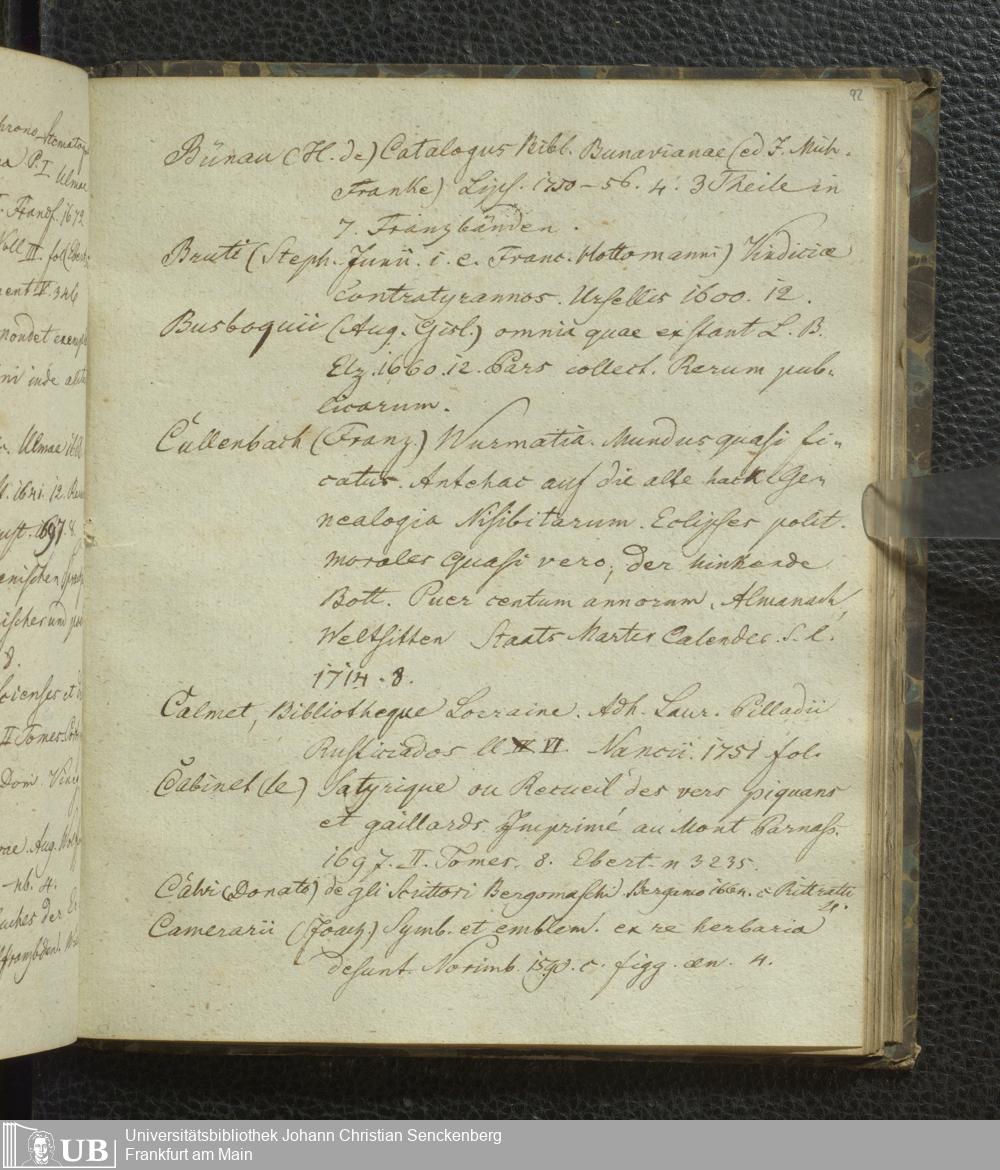 92
Bünau (H. de) Catalogus Bibl. Bunavianae (ed J. Mich.
Franke) Lips. 1750–56. 4. 3 Theile in
7. Franzbänden.
Bruti (Steph. Junii. i. e. Franc. Hottomanni) Vindiciæ
contratyrannos. Ursellis 1600. 12.
Busboquii (Aug. Gisl.) omnia quae exstant L. B.
Elz. 1660. 12. Pars collect. Rerum pub-
licarum.
Callenbach (Franz.) Wurmatia. Mundus quasi fi-
catus. Antehac auf die alte hack Ge-
nealogia Nisibitarum. Eclipses polit.
morales Quasi vero, der hinkende
Bott. Puer centum annorum. Almanach,
Weltsitten Staats Marter Calender. S. l.
1714. 8.
Calmet, Bibliotheque Lorraine. Adh. Laur. Pilladii
Rusticiados ll VI Nancii. 1751 fol.
Cabinet (le) Satyrique ou Recueil des vers piquans
et gaillards. Imprimé au Mont Parnass.
1697. II. Tomes. 8. Ebert n 3235.
Calvi (Donato) degli Scrittori Bergomaschi. Bergamo 1664. c Rittratti
4.
Camerarii (Joach) Symb. et emblem. ex re herbaria
desunt. Norimb. 1590. c. figg. æn. 4.
hrono-Stemato
a P. I. Ulmae
Francf. 1672
Voll III. fol (Ebert
ment V. 346
pondet exempl
ni inde alit
Ulmae 16
1641. 12.
1697. 8
enischen Spra
ischer und
8.
II Tomes.
Dom. Vin
rae. Aug.
-nb. 4.
uches der E
UB
Universitätsbibliothek Johann Christian Senckenberg
Frankfurt am Main